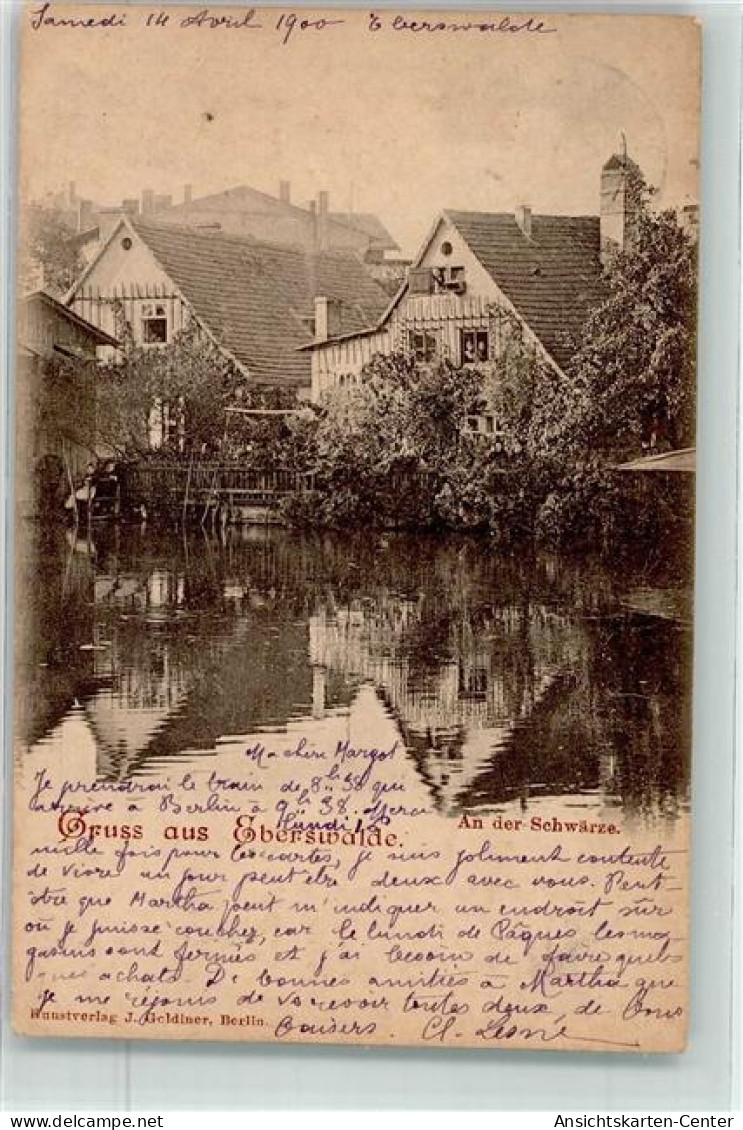 Samedi 14 Avril 1900 Eberswalde
Ma chère Margot
Je prendrai le train de 8h 38 qui
arrive à Berlin à 9h 38. Merci
lundi
Gruss aus Eberswalde.
An der Schwärze.
mille fois pour les cartes, je suis joliment contente
de vivre un jour peut être deux avec vous. Peut-
être que Martha peut m'indiquer un endroit sûr
où je puisse coucher, car le lundi de Pâques les ma-
gasins sont fermés et j'ai besoin de faire quels
ques achats. De bonnes amitiés à Martha que
je me réjouis de va revoir toutes deux, de bons
Kunstverlag J. Goldiner, Berlin.
baisers. Cl. Lesné
delcampe.net
Ansichtskarten-Center